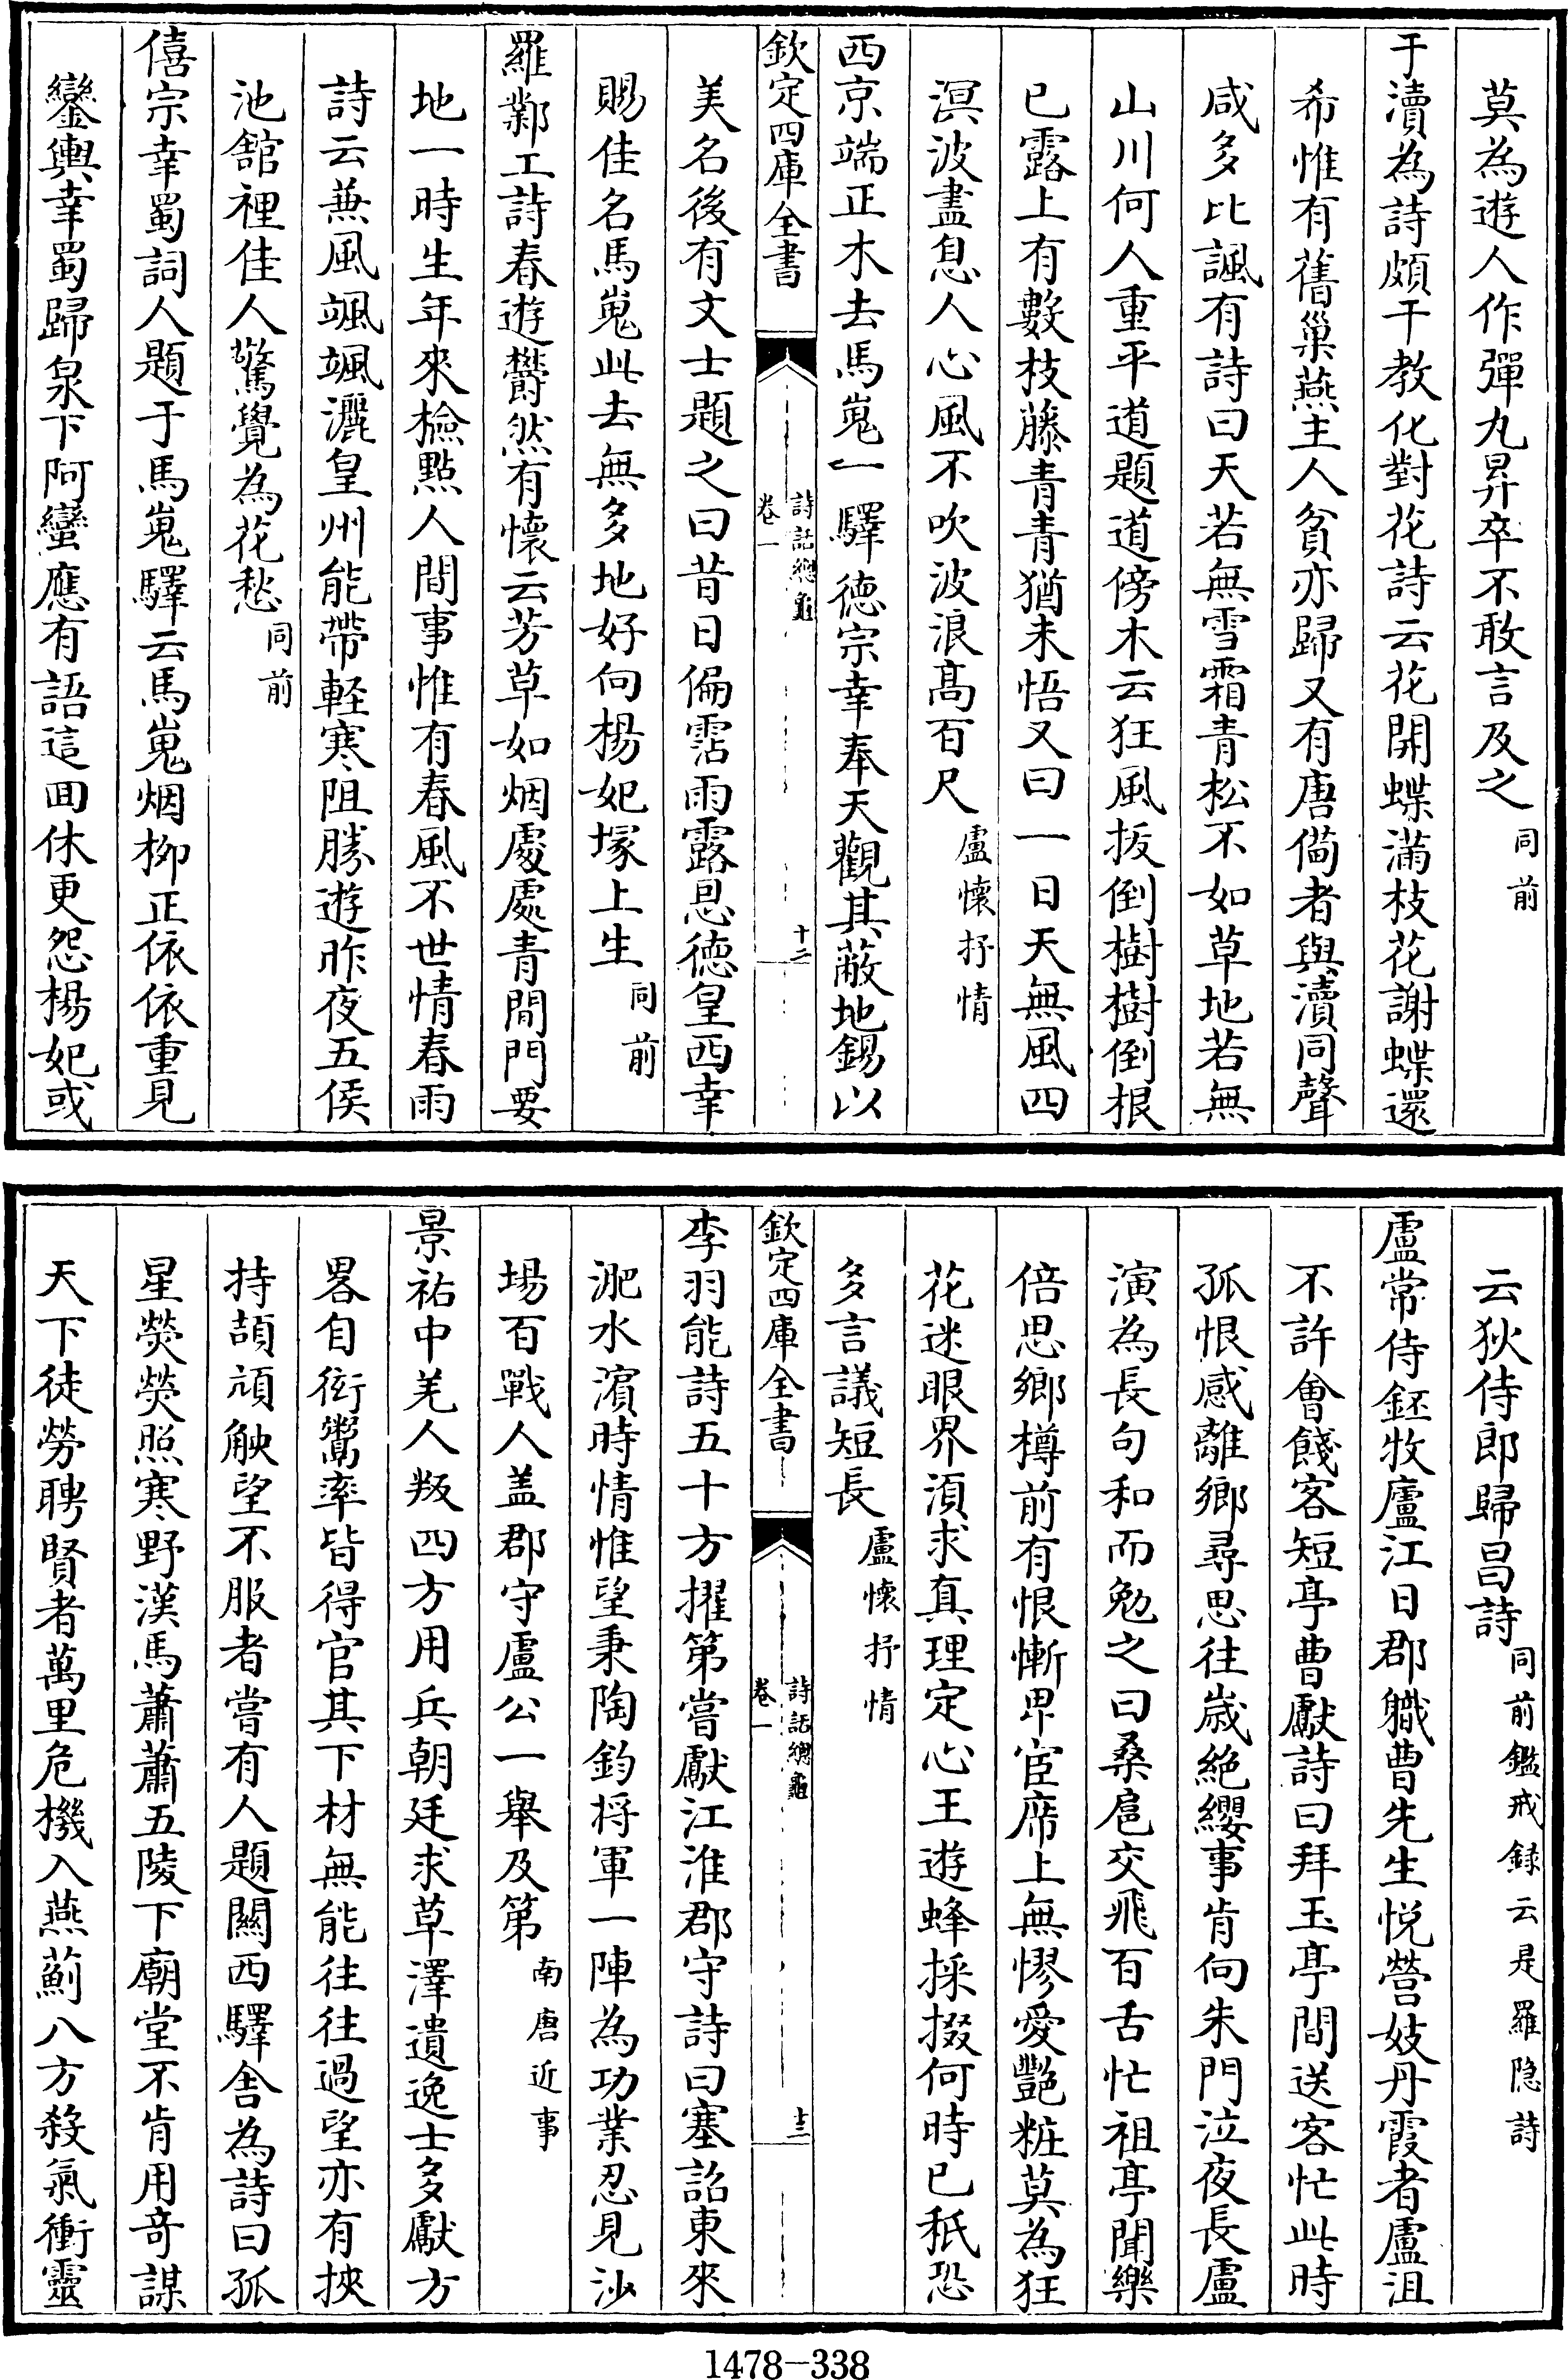 莫為遊人作彈丸昇卒不敢言及之同前
于瀆為詩頗干教化對花詩云花開蝶滿枝花謝蝶還
希惟有舊巢燕主人貧亦歸又有唐備者與瀆同聲
咸多比諷有詩曰天若無雪霜青松不如草地若無
山川何人重平道題道傍木云狂風拔倒樹樹倒根
已露上有數枝藤青青猶未悟又曰一日天無風四
溟波盡息人心風不吹波浪髙百尺盧懐抒情
西京端正木去馬嵬一驛徳宗幸奉天觀其蔽地錫以
欽定四庫全書
詩話總龜
卷一
十二
美名後有文士題之曰昔日偏霑雨露恩徳皇西幸
賜佳名馬嵬此去無多地好向楊妃塚上生同前
羅鄴工詩春遊欝然有懷云芳草如烟處處青閒門要
地一時生年來檢點人間事惟有春風不世情春雨
詩云兼風颯颯灑皇州能帶輕寒阻勝遊昨夜五侯
池舘裡佳人驚覺為花愁同前
僖宗幸蜀詞人題于馬嵬驛云馬嵬烟栁正依依重見
鑾輿幸蜀歸泉下阿蠻應有語這囬休更怨楊妃或
云狄侍郎歸昌詩同前鑑戒録云是羅隐詩
盧常侍鉟牧廬江日郡職曹先生悦營妓丹霞者盧沮
不許會餞客短亭曹獻詩曰拜玉亭間送客忙此時
孤恨感離鄉尋思往嵗絶纓事肯向朱門泣夜長盧
演為長句和而勉之曰桑扈交飛百舌忙祖亭聞樂
倍思鄉樽前有恨慚卑宦席上無憀愛艷粧莫為狂
花迷眼界湏求真理定心王遊蜂採掇何時已秖恐
多言議短長盧懐抒情
欽定四庫全書
詩話總龜
卷一
十三
李羽能詩五十方擢第嘗獻江淮郡守詩曰塞詔東來
淝水濵時情惟望秉陶鈞将軍一陣為功業忍見沙
場百戰人盖郡守盧公一舉及第南唐近事
景祐中羌人叛四方用兵朝廷求草澤遺逸士多獻方
畧自衒鬻率皆得官其下材無能往往過望亦有挾
持頡頏觖望不服者嘗有人題闗西驛舍為詩曰孤
星熒熒照寒野漢馬蕭蕭五陵下廟堂不肯用竒謀
天下徒勞聘賢者萬里危機入燕薊八方殺氣衝靈
1478-338